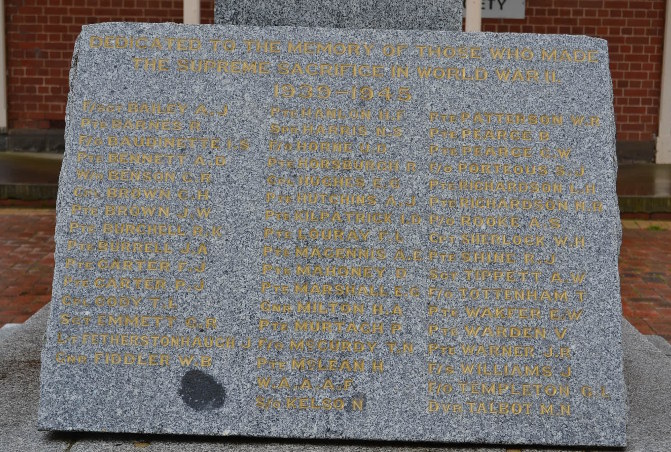 ETY
DEDICATED TO THE MEMORY OF THOSE WHO MADE
THE SUPREME SACRIFICE IN WORLD WAR II
1939-1945
BAILEY A.J
PTE BARNES R
BAUDINETTE I.S
PTE BENNETT A.B
BENSON
BROWN C.H
PTE BROWN J.W
PTE BURCHELL R.K
PTE BURRELL J.A
PTE CARTER E.J
PTE CARTER R.J
CODY T.L
EMMETT
FETHERSTONHAUGH J
GNR FIDDLER W.B
PTE HANLON H.F
HARRIS N.S
HORNE
PTE HORSBURGH R
HUGHES
PTE HUTCHINS A.J
PTE KILPATRICK
PTE LOURAY T.L
PTE MAGENNIS A.E
PTE MAHONEY D
PTE MARSHALL E.C
GNR MILTON H.A
PTE MURTAGH P
MCCURDY T.N
PTE MCLEAN H
W.A.A.A.F
KELSO N
PTE PATTERSON W.J
PTE PEARCE P
PTE PEARCE T.W
PORTEOUS S.J
PTE RICHARDSON L.H
PTE RICHARDSON N.G
PTE ROOKE A.S
SHERLOCK W.H
PTE SHINE P.J
SGT TIPPETT A.W
TOTTENHAM T
PTE WAKFER E.W
PTE WARDEN V
PTE WARNER J.R
WILLIAMS J
TEMPLETON
TALBOT M.N